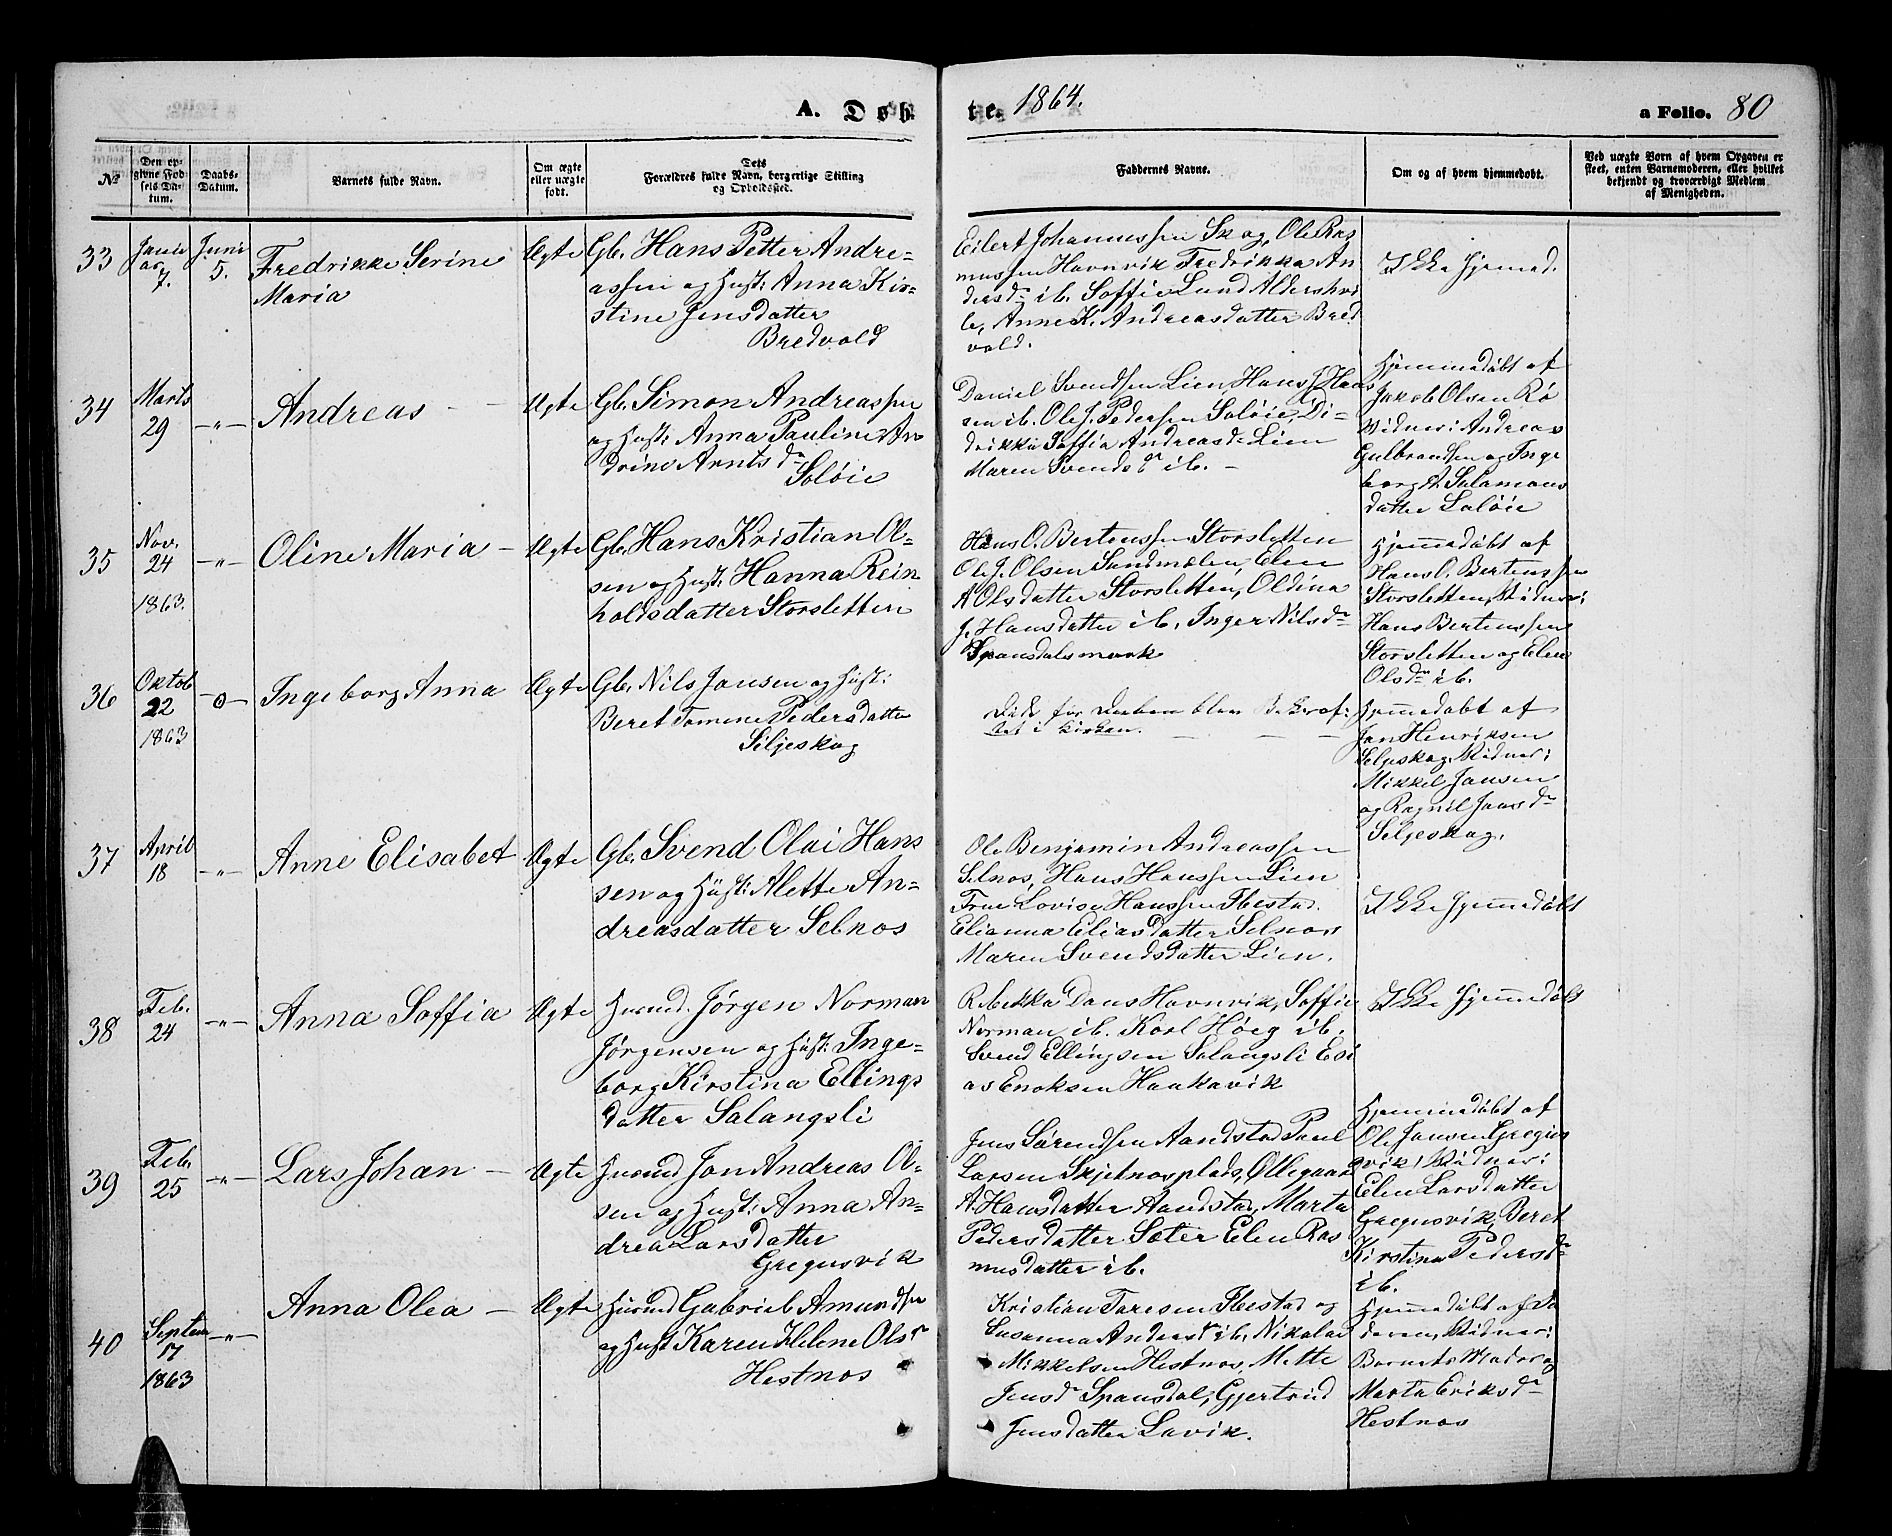 A. Døb
te. 1864.
a Folio. 80
№
Den op-
givne Fød-
sels Da-
tum.
Daabs-
Datum.
Barnets fulde Navn.
Om ægte
eller uægte
født.
Dets
Forældres fulde Navn, borgerlige Stilling
og Opholdssted.
Faddernes Navne.
Om og af hvem hjemmedøbt.
Ved uægte Børn af hvem Opgaven er
skeet, enten Barnemoderen, eller hvilket
bekjendt og troværdigt Medlem
af Menigheden.
33
7.
Juni
5.
Fredrikke Serine
Maria
Ægte
Gb. Hans Petter Andre-
assen og Hust: Anna Kir-
stine Jensdatter
Bredvold
Eilert Johannessen Skog, Ole Ras
mussen Havnvik Fredrikka An
dersdr ib. Soffie Lund Aldershvi
le, Anne K. Andreasdatter Bred
vold.
Ikke Hjemmed.
34
Marts
29
-"-
Andreas
Ægte
Gb. Simon Andreassen
og Hust: Anna Pauline An
drine Arntsdr
Soløie
Daniel Svendsen Lien Hans J. Han
sen ib. Ole J. Pedersen Soløie, Di
drikke Soffia Andreasdr Lien
Maren Svendsdr ib.
Hjemmedøbt af
Jakob Olsen Rø
Vidner: Andreas
Gulbrandsen og Inge
borg A. Salamons
datter Soløie
35
Nov.
24
1863.
-"-
Oline Maria
Ægte
Gb. Hans Kristian Ol-
sen og Hust: Hanna Rein
holdsdatter Storsletten
Hans O. Bertenssen Storsletten
Ole J. Olsen Sandmælen, Elen
A Olsdatter Storsletten, Oldina
J. Hansdatter ib. Inger Nilsdr
Spansdalsmark
Hjemmedøbt af
Hans O. Bertenssen
Storsletten, Vidner:
Hans Bertenssen
Storsletten og Elen
Olsdr ib.
36
Oktob
22
1863
-o-
Ingeborg Anna
Ægte
Gb. Nils Jansen og Hust:
Beret Tomine Pedersdatter
Seljeskog
Døde før Daaben blev Bekræf-
tet i Kirken.
Hjemmedøbt af
Jan Henriksen
Seljeskog Vidner:
Mikkel Jansen
og Ragnil Jansdr
Seljeskog.
37
April
18
-"-
Anne Elisabet
Ægte
Gb. Svend Olai Hans
sen og Hust: Alette An-
dreasdatter Selnos
Ole Benjamin Andreassen
Selnos, Hans Hanssen Lien
Frue Lovise Hanssen Ibestad.
Elianna Eliasdatter Selnos
Maren Svendsdatter Lien.
Ikke Hjemmedøbt
38
Feb.
24
-"-
Anna Soffia
Ægte
Husmd. Jørgen Norman
Jørgensen og Hust: Inge-
borg Kirstina Ellings
datter Salangsli
Rebekka Dans Havnvik, Soffie
Norman ib. Karl Høeg ib.
Svend Ellingsen Salangsli Eli
as Enoksen Haakavik
Ikke Hjemmedøbt
39
Feb.
25
-"-
Lars Johan
Ægte
Husmd Jon Andreas Ol-
sen og Hust: Anna An-
drea Larsdatter
Gregusvik
Jens Sørendsen Aandstad Paul
Larsen Skjetnosplads, Øllegaar
A. Hansdatter Aandstad, Marta
Pedersdatter Sæter Elen Ras
musdatter ib.
Hjemmedøbt af
Ole Jansen Gregus
vik, Vidner:
Elen Larsdatter
Gregusvik, Beret
Kirstina Pedersdr
ib.
40
Septem
7
1863
-"-
Anna Olea
Ægte
Husmd Gabriel Amundsen
og Hust Karen Helene Olsdr
Hestnos
Kristian Taresen Ibestad og
Susanna Andersdr ib. Nikolai
Mikkelsen Hestnos Mette
Jensdr Spansdal, Gjertrud
Jensdatter Lavik.
Hjemmedøbt af Fa
deren, Vidner:
Barnets Moder og
Marta Eriksdr
Hestnos